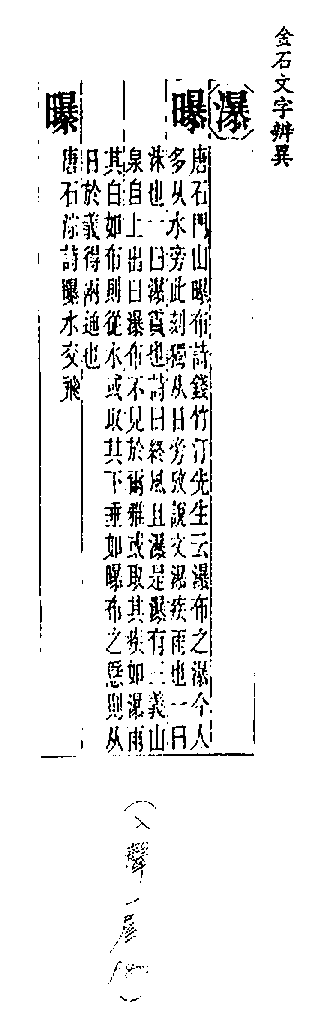 金石文字辨異
瀑
曝 唐石門山曝布詩錢竹汀先生云瀑布之瀑今人
多从水旁此刻獨从日旁攷說文瀑疾雨也一曰
沫也一曰瀑賈也詩曰終風且瀑是瀑有三義山
泉自上出曰瀑布不見於爾雅或取其疾如瀑雨
其白如布則從水或取其下垂如曝布之懸則从
日於義得兩通也
曝 唐石淙詩曝水交飛
入聲一屋